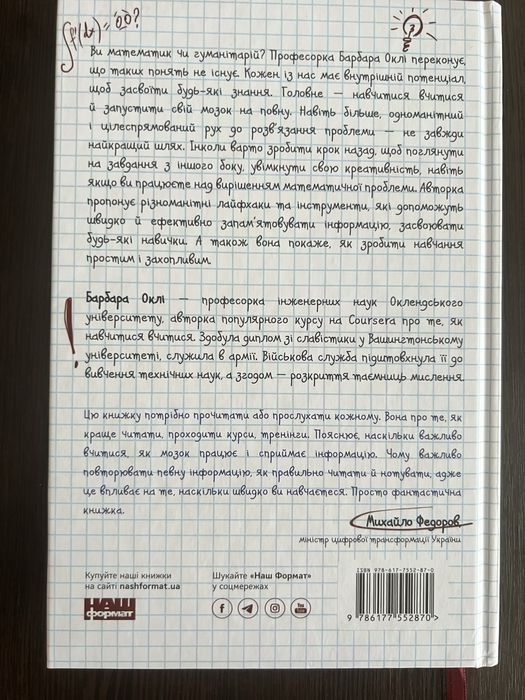 Ви математик чи гуманітарій? Професорка Барбара Оклі переконує,
що таких понять не існує. Кожен із нас має внутрішній потенціал,
щоб засвоїти будь-які знання. Головне — навчитися вчитися
й запустити свій мозок на повну. Навіть більше, одноманітний
і цілеспрямований рух до розв'язання проблеми — не завжди
найкращий шлях. Інколи варто зробити крок назад, щоб поглянути
на завдання з іншого боку, увімкнути свою креативність, навіть
якщо ви працюєте над вирішенням математичної проблеми. Авторка
пропонує різноманітні лайфхаки та інструменти, які допоможуть
швидко й ефективно запам'ятовувати інформацію, засвоювати
будь-які навички. А також вона покаже, як зробити навчання
простим і захопливим.
Барбара Оклі — професорка інженерних наук Оклендського
університету, авторка популярного курсу на Coursera про те, як
навчитися вчитися. Здобула диплом зі славістики у Вашингтонському
університеті, служила в армії. Військова служба підштовхнула її до
вивчення технічних наук, а згодом — розкриття таємниць мислення.
Цю книжку потрібно прочитати або прослухати кожному. Вона про те, як
краще читати, проходити курси, тренінги. Пояснює, наскільки важливо
вчитися, як мозок працює і сприймає інформацію. Чому важливо
повторювати певну інформацію, як правильно читати й нотувати, адже
це впливає на те, наскільки швидко ви навчаєтеся. Просто фантастична
книжка.
Михайло Федоров,
міністр цифрової трансформації України
Купуйте наші книжки
на сайті nashformat.ua
Шукайте «Наш Формат»
у соцмережах
НАШ
формат
You
Tube
ISBN 978-617-7552-87-0
9 786177 552870 >